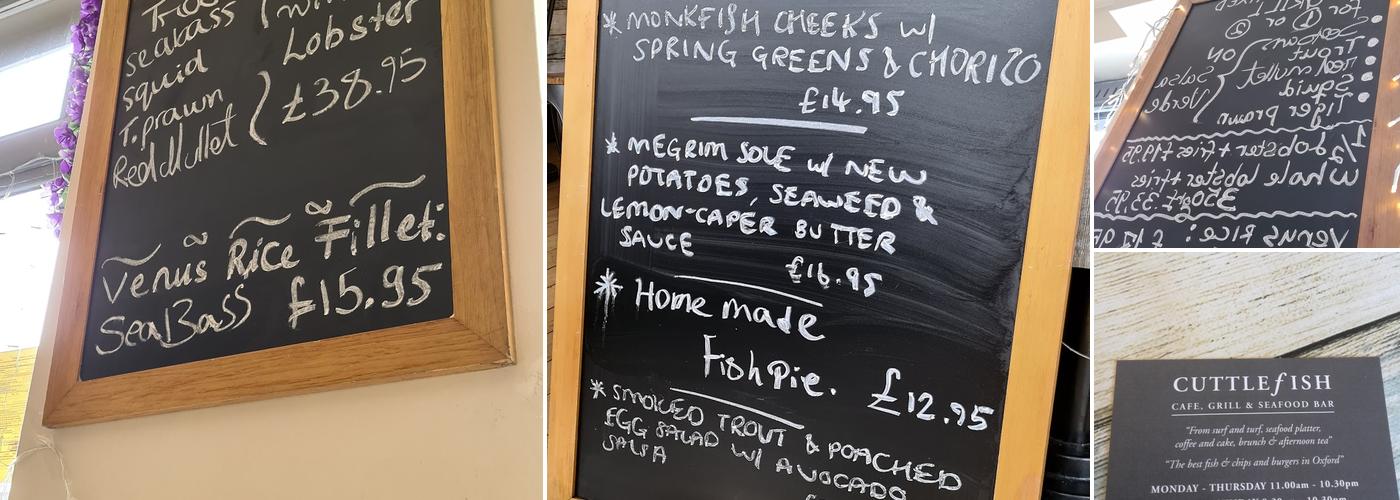 seabass
squid
T.prawn
Red Mullet
Lobster
£38.95
Venus Rice Fillet:
SeaBass £15.95
* MONKFISH CHEEKS W/
SPRING GREENS & CHORIZO
£14.95
* MEGRIM SOLE W/ NEW
POTATOES, SEAWEED &
LEMON-CAPER BUTTER
SAUCE £16.95
* Home made
Fish Pie. £12.95
* SMOKED TROUT & POACHED
EGG SALAD W/ AVOCADO
SALSA
for
① or ②
Seabass
Trout
red mullet
Squid
Tiger prawn
on
Salsa
Verde
1/2 Lobster + fries £19.95
Whole lobster + fries
350gr £ 33.95
Venus Rice:
CUTTLEfISH
CAFE, GRILL & SEAFOOD BAR
"From surf and turf, seafood platter,
coffee and cake, brunch & afternoon tea"
"The best fish & chips and burgers in Oxford"
MONDAY - THURSDAY 11.00am - 10.30pm
10.30pm